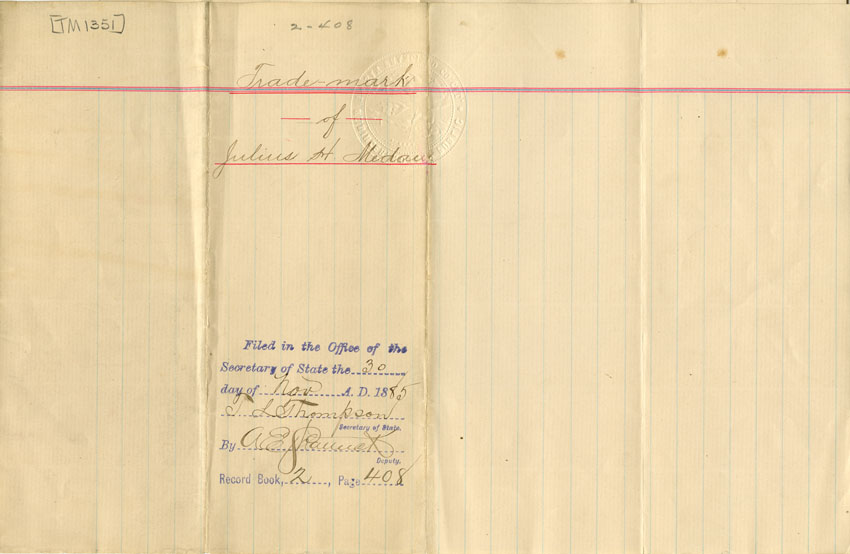 [TM1351]
2-408
Trade-mark
of
Julius H.
Filed in the Office of the
Secretary of State the 30
day of Nov A. D. 1885
T. L. Thompson
Secretary of State.
By A. E.
Deputy.
Record Book, 2, Page 408